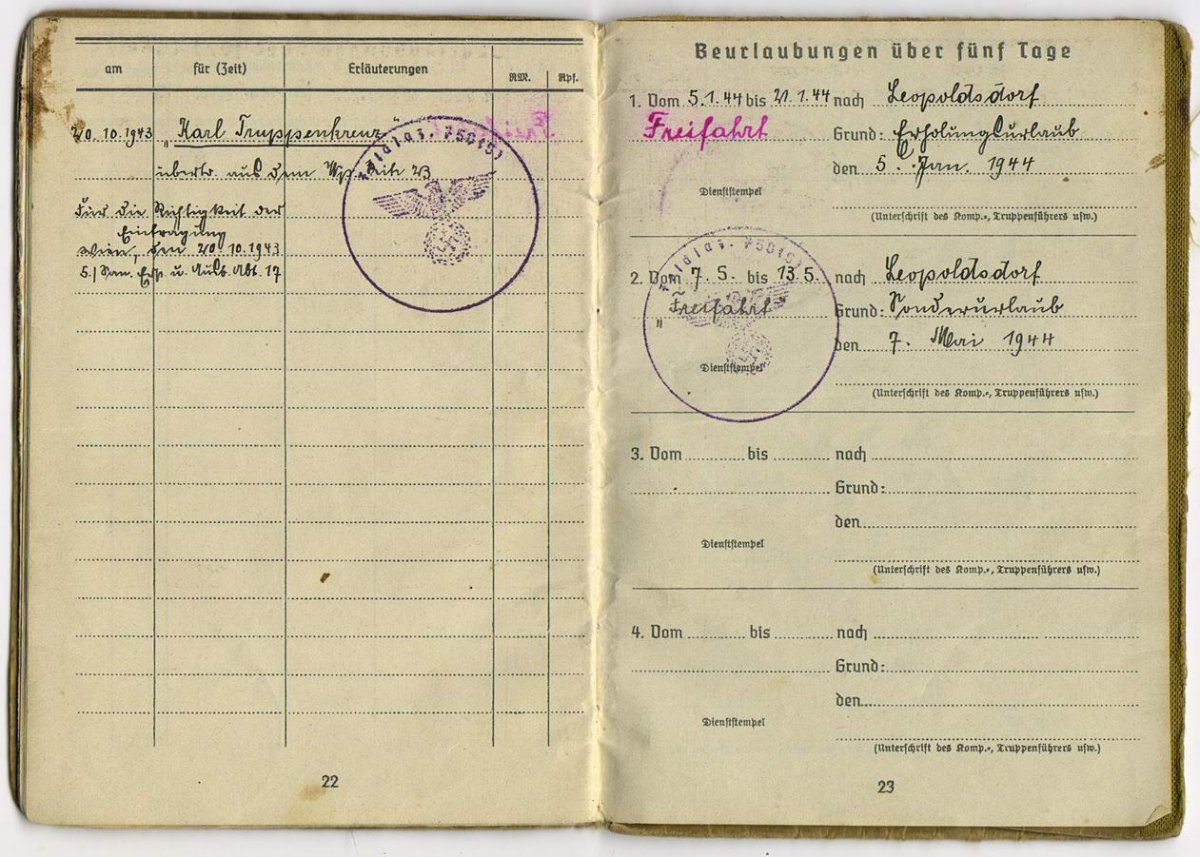 am für (Zeit) Erläuterungen RM. Rpf.
20.10.1943 "Karl Truppenkreuz"
übertr. aus dem Wp. Seite 23
Für die Richtigkeit der
Eintragung
Wien, den 20.10.1943
5./San. Ers. u. Ausb. Abt. 17
22
Beurlaubungen über fünf Tage
1. Vom 5.1.44 bis 21.1.44 nach Leopoldsdorf
Freifahrt Grund: Erholungsurlaub
den 5. Jan. 1944
Dienststempel
(Unterschrift des Komp.-, Truppenführers usw.)
2. Vom 7.5. bis 13.5. nach Leopoldsdorf
"Freifahrt" Grund: Sonderurlaub
den 7. Mai 1944
Dienststempel
(Unterschrift des Komp.-, Truppenführers usw.)
3. Vom bis nach
Grund:
den
Dienststempel
(Unterschrift des Komp.-, Truppenführers usw.)
4. Vom bis nach
Grund:
den
Dienststempel
(Unterschrift des Komp.-, Truppenführers usw.)
23